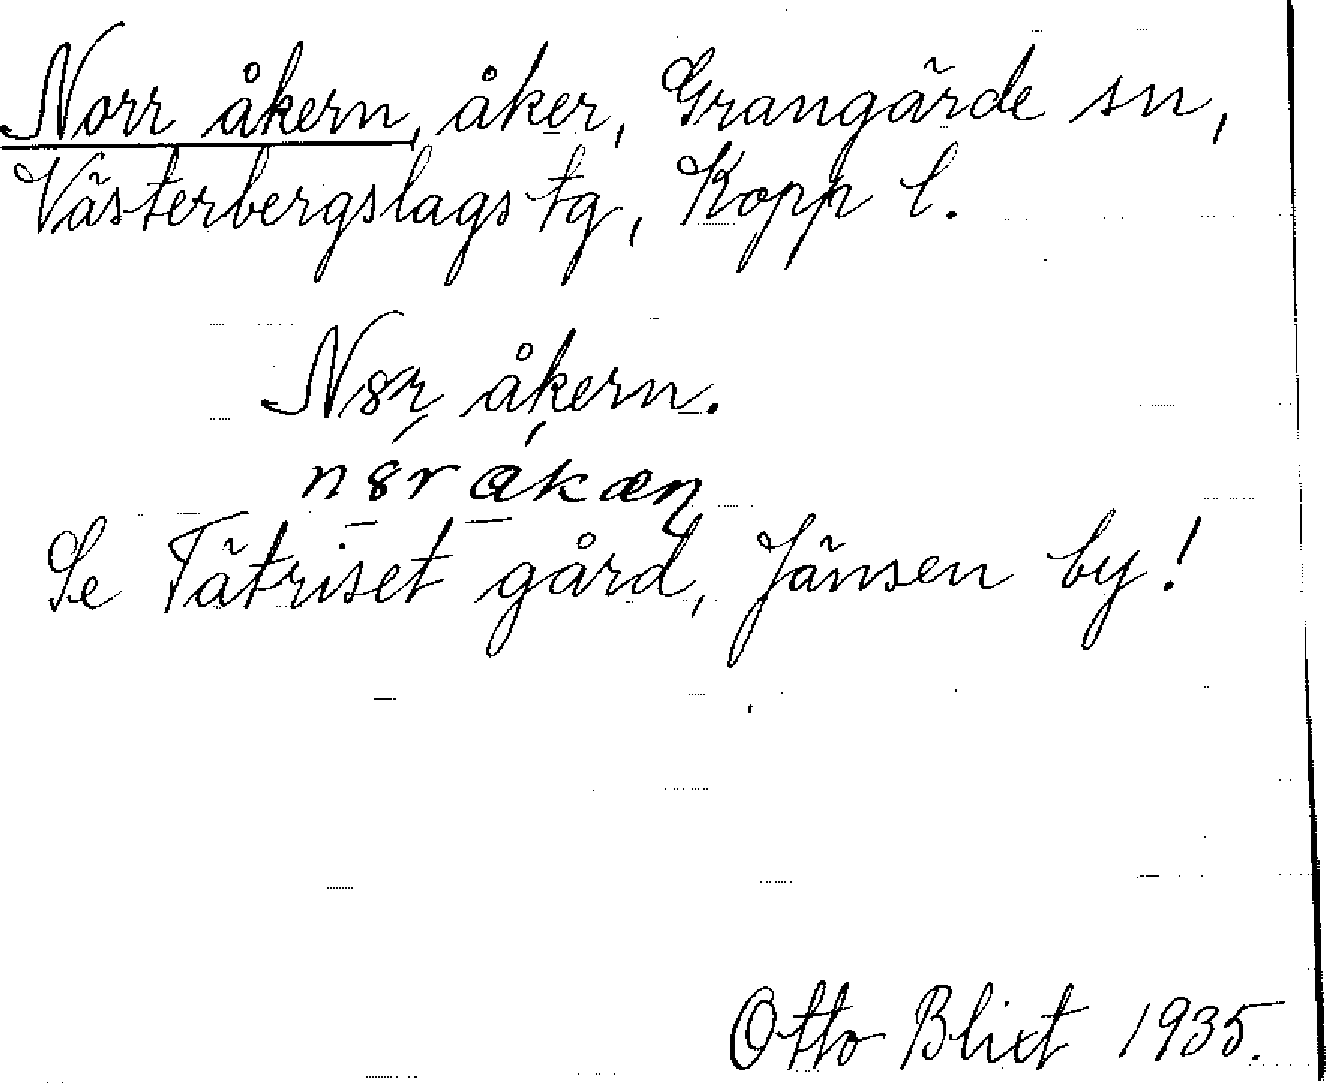 Norr åkern, åker, Grangärde sn,
Västerbergslags tg, Kopp l.
N8r åkern.
n8r åkæn
Se Tätriset gård, Jänsen by!
Otto Blixt 1935.